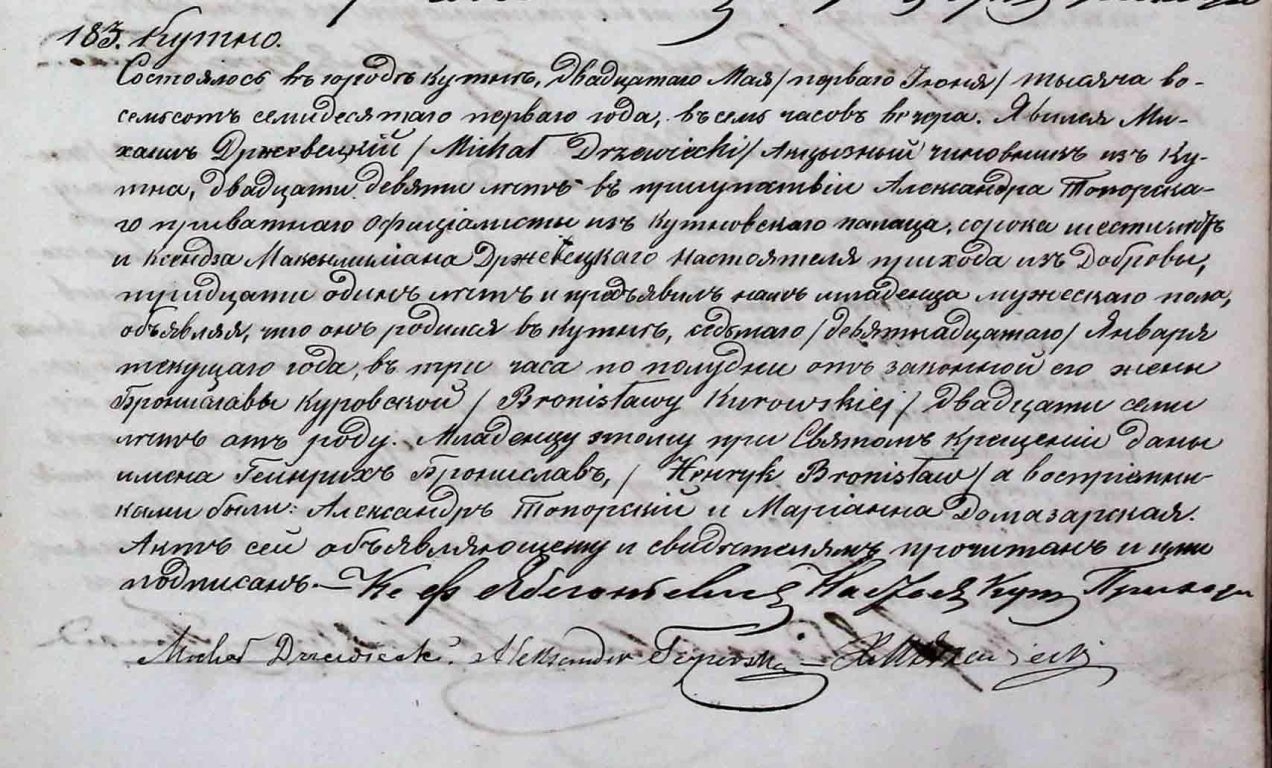 183. Кутно.
Состоялось въ городѣ Кутнѣ, двадцатаго Мая /перваго Іюня/ тысяча во-
семьсотъ семидесятаго перваго года, въ семь часовъ вечера. Явился Ми-
хаилъ Држевецкій /Michał Drzewiecki/ Акцызный чиновникъ изъ Ку-
тна, двадцати девяти лѣтъ въ присутствіи Александра Топорска-
го приватнаго Официалисты изъ Кутновскаго палаца, сорока шести лѣтъ
и Ксендза Максымиліана Држевецкаго настоятеля прихода изъ Добровы,
тридцати одинъ лѣтъ и предъявилъ намъ младенца мужескаго пола,
объявляя, что онъ родился въ Кутнѣ, седьмаго /девятнадцатаго/ Января
текущаго года, въ три часа по полудни отъ законной его жены
Брониславы Куровской /Bronisławy Kurowskiej/ двадцати семи
лѣтъ отъ роду. Младенцу этому при Святомъ Крещеніи даны
имена Гейнрихъ Брониславъ, /Henryk Bronisław/ а воспріемни-
ками были: Александръ Топорскій и Маріанна Домазарская.
Актъ сей объявляющему и свидѣтелямъ прочитанъ и ими
подписанъ. — Кс Ф Наст Кут Прихода
Michał Drzewiecki. Aleksander Toporski —